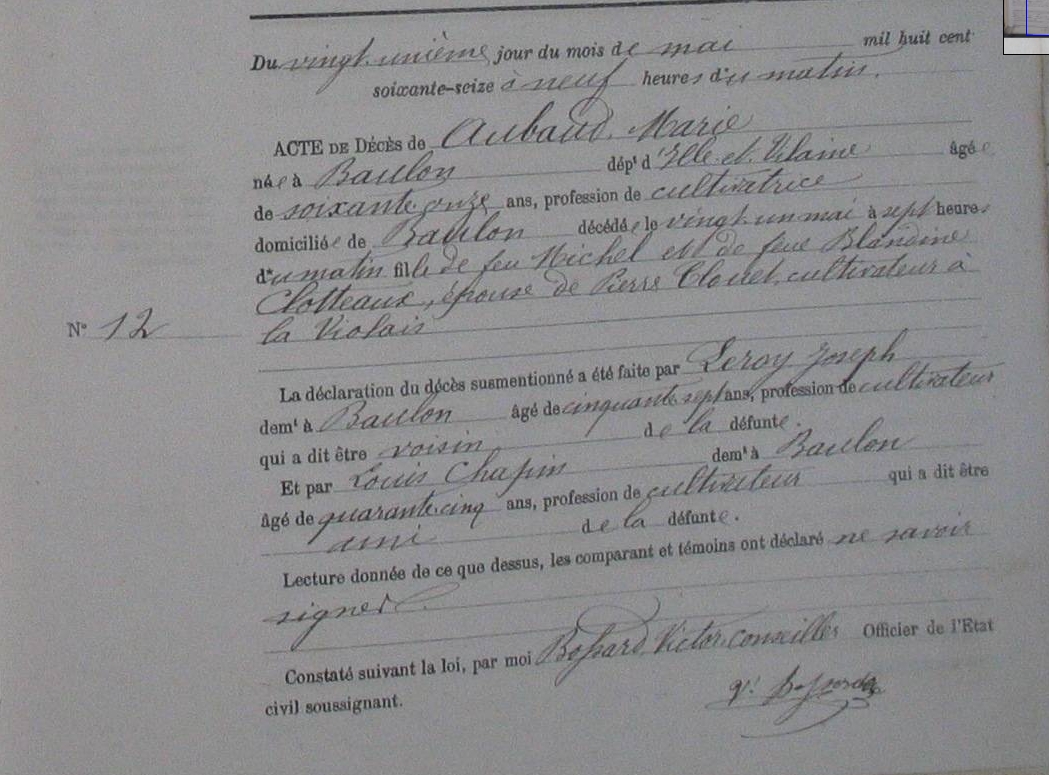 Du vingt-unième jour du mois de mai mil huit cent
soixante-seize à neuf heures du matin.
ACTE DE DÉCÈS de Aubaud Marie
née à Baulon dépt d'Ille-et-Vilaine âgée
de soixante-onze ans, profession de cultivatrice
domiciliée de Baulon décédée le vingt-un mai à sept heures
du matin fille de feu Michel et de feue Blandine
Clotteaux, épouse de Pierre Clouet, cultivateur à
la Violais
N° 12
La déclaration du décès susmentionné a été faite par Leroy Joseph
demt à Baulon âgé de cinquante-sept ans, profession de cultivateur
qui a dit être voisin de la défunte.
Et par Louis Chapin demt à Baulon
âgé de quarante-cinq ans, profession de cultivateur qui a dit être
ami de la défunte.
Lecture donnée de ce que dessus, les comparant et témoins ont déclaré ne savoir
signer.
Constaté suivant la loi, par moi Bossard, Victor, conseiller Officier de l'Etat
civil soussignant.
V. Bossard